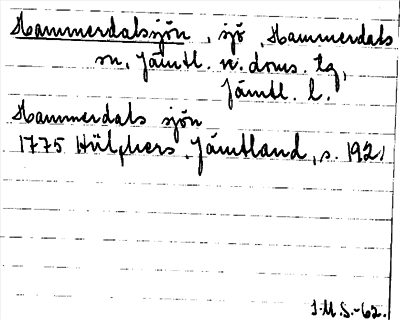 Hammerdalssjön, sjö, Hammerdals
sn, Jämtl. n. doms. tg,
Jämtl. l.
Hammerdals sjön
1775 Hülphers Jämtland, s. 192.
I.M.S.-62.